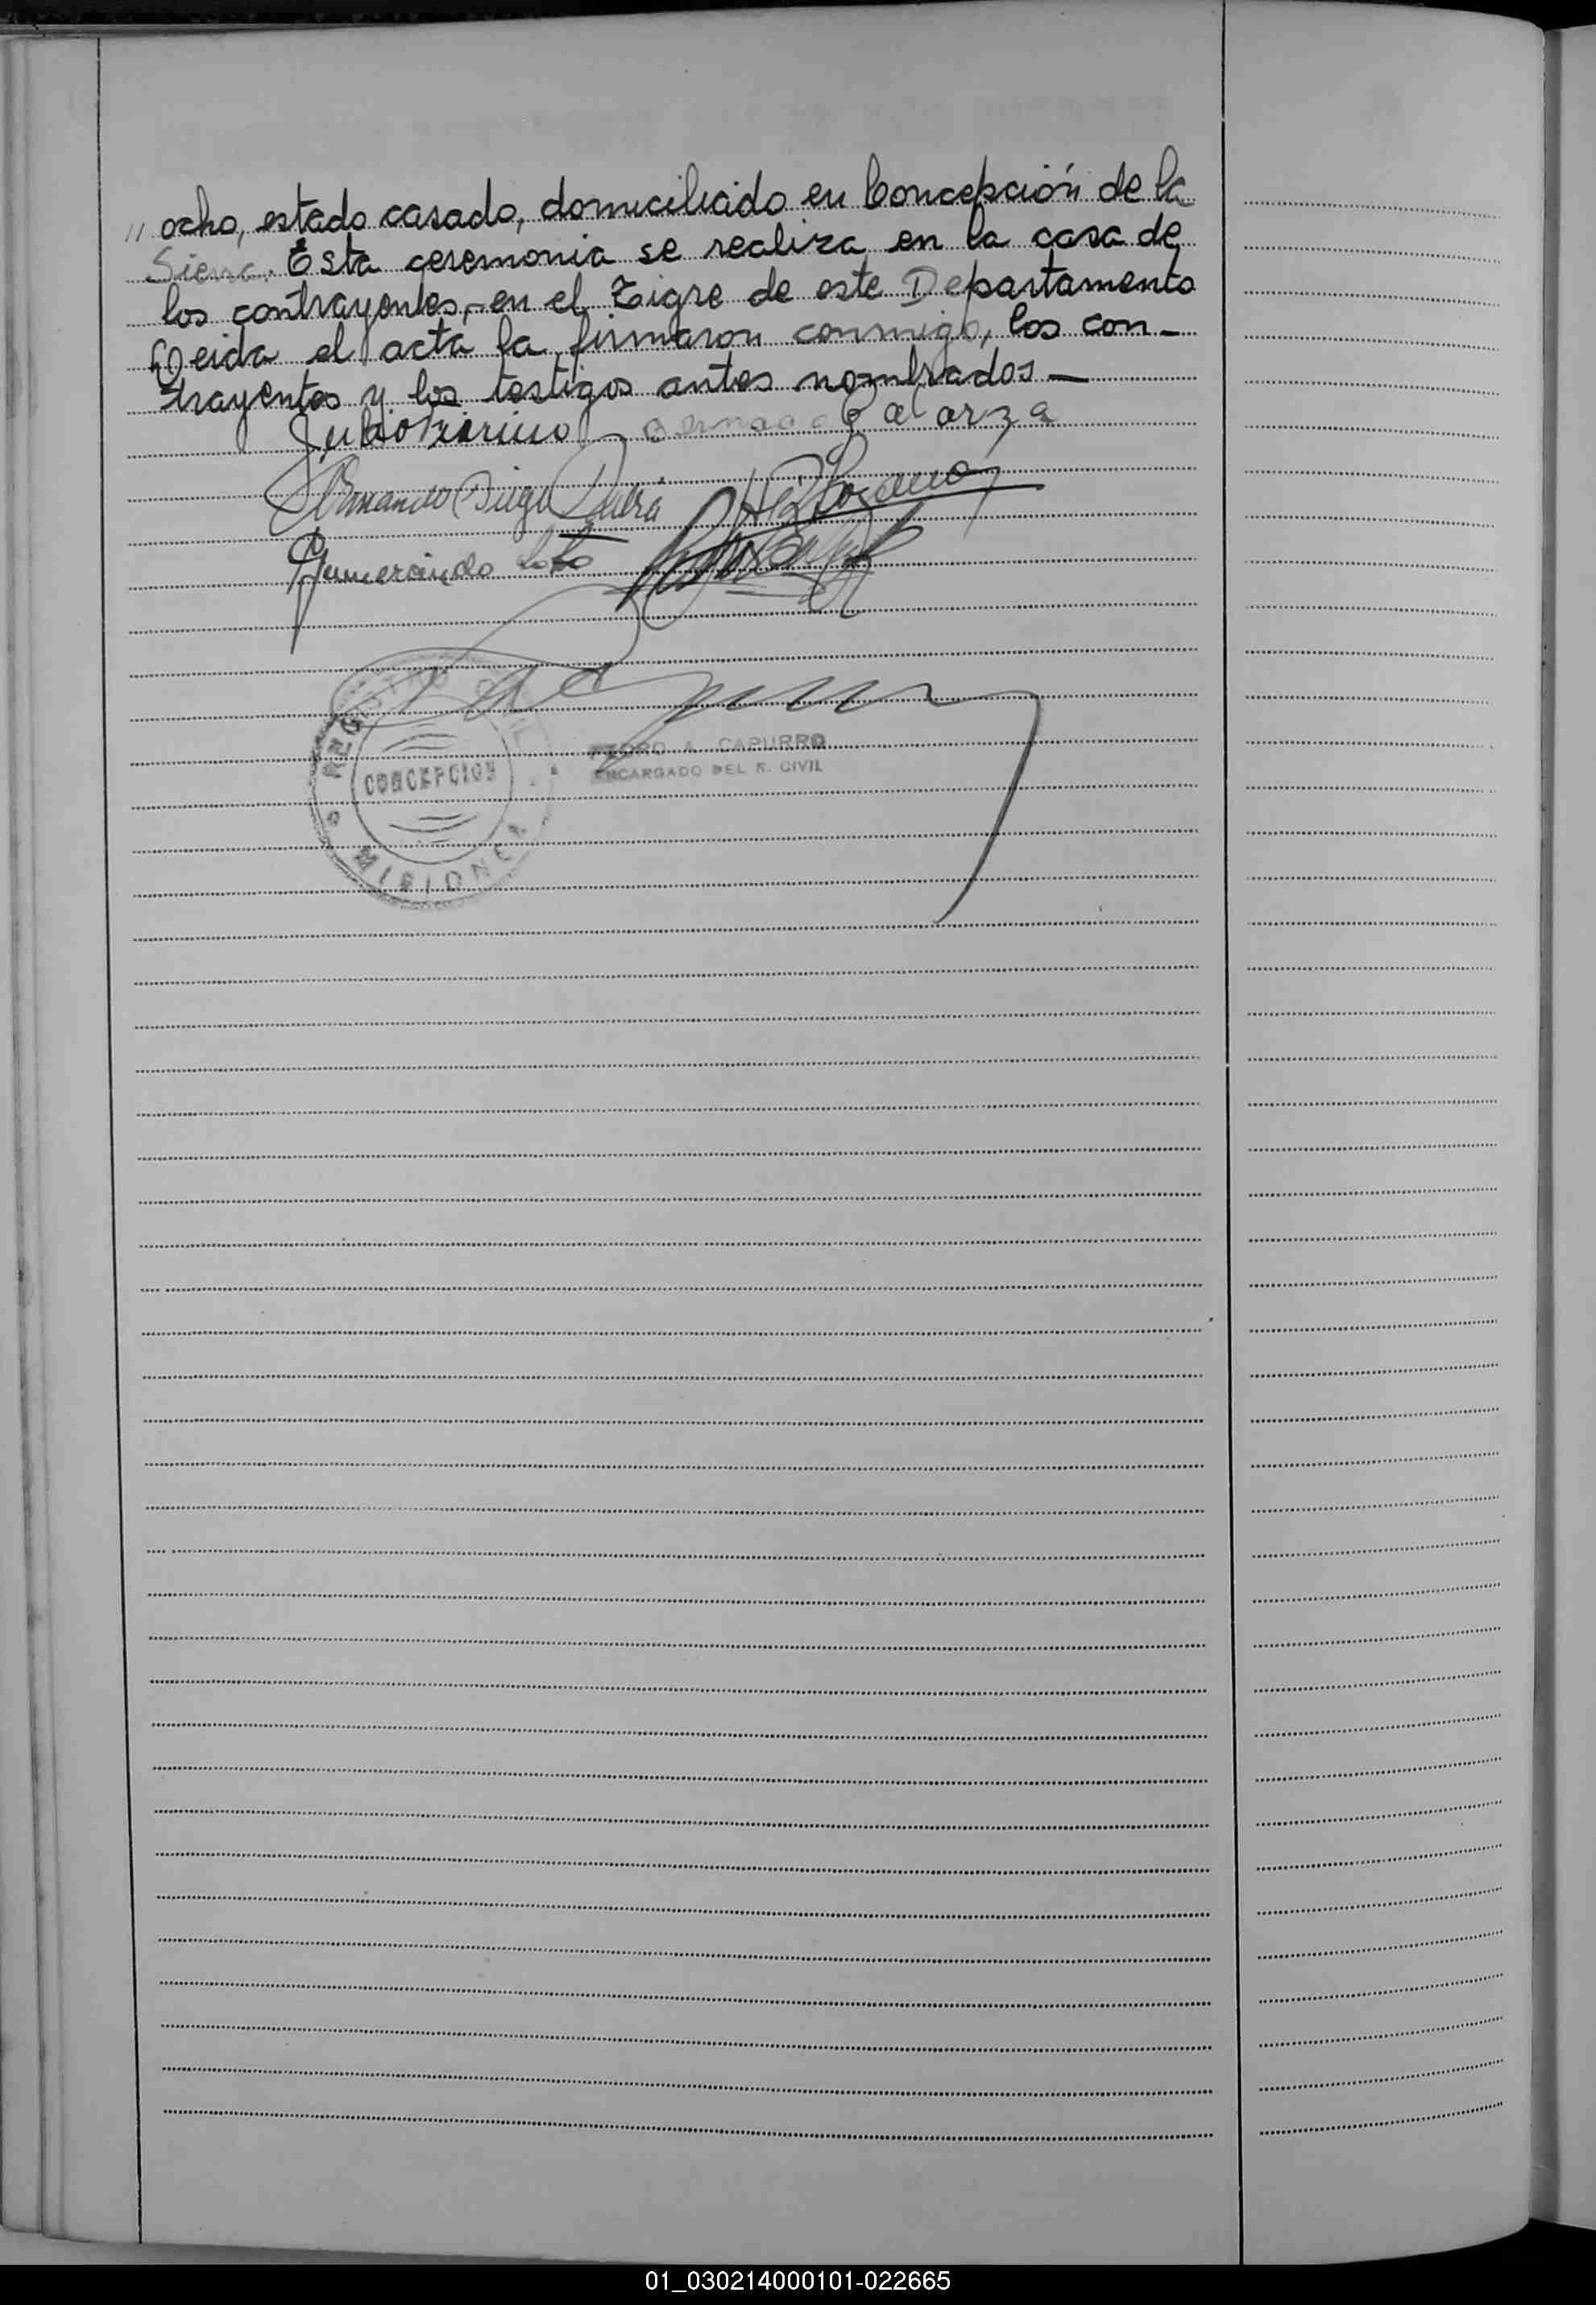 " ocho, estado casado, domiciliado en Concepción de la
Sierra. Esta ceremonia se realiza en la casa de
los contrayentes, en el Tigre de este Departamento
Leida el acta la firmaron conmigo, los con-
trayentes y los testigos antes nombrados —
Julio Galarza
Armando Diego
Gumercindo Soto
REGISTRO
CONCEPCION
MISIONES
PEDRO A. CAPURRO
ENCARGADO DEL R. CIVIL
01_030214000101-022665